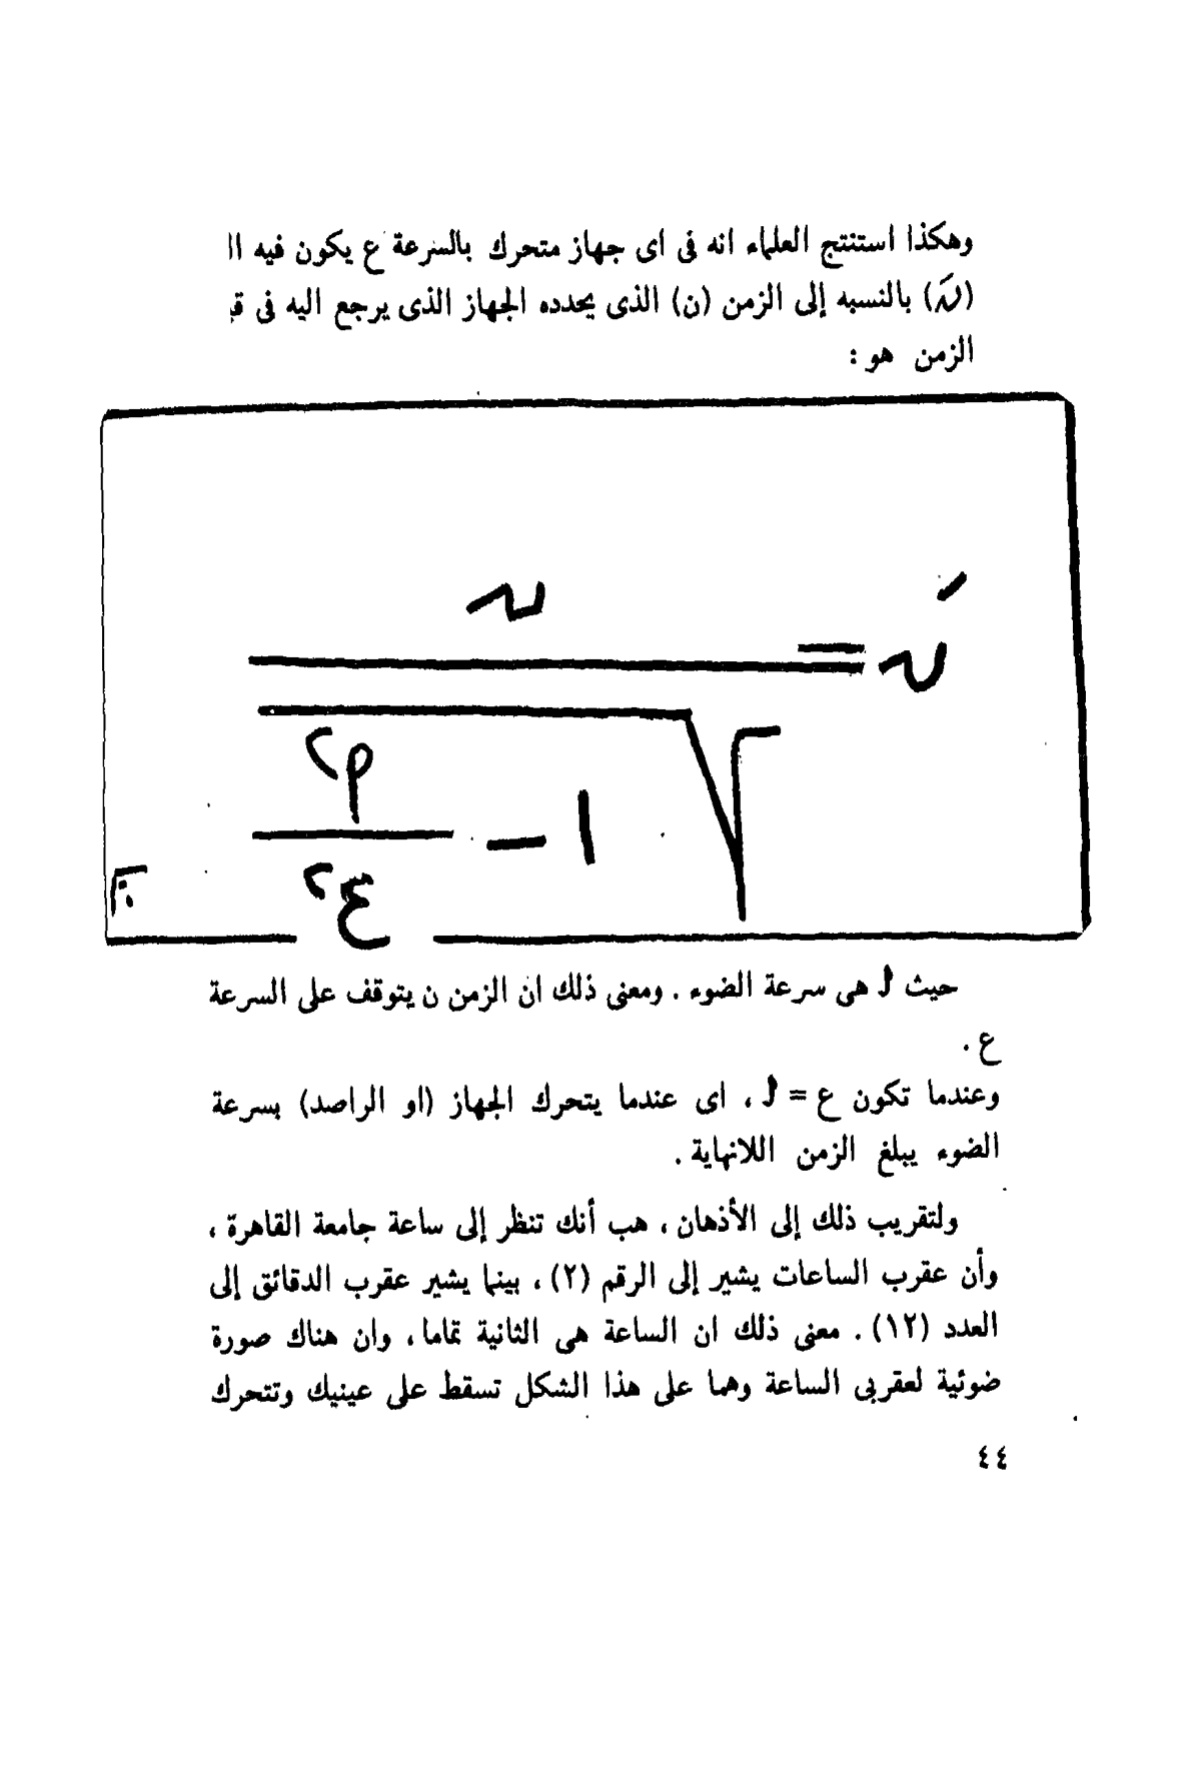 وهكذا استنتج العلماء انه فى اى جهاز متحرك بالسرعة ع يكون فيه
(نَ) بالنسبه إلى الزمن (ن) الذى يحدده الجهاز الذى يرجع اليه فى
الزمن هو :
نَ = ن
√ ١ - م٢
ع٢
حيث م هى سرعة الضوء . ومعنى ذلك ان الزمن ن يتوقف على السرعة
ع .
وعندما تكون ع = م ، اى عندما يتحرك الجهاز (او الراصد) بسرعة
الضوء يبلغ الزمن اللانهاية .
ولتقريب ذلك إلى الأذهان ، هب أنك تنظر إلى ساعة جامعة القاهرة ،
وأن عقرب الساعات يشير إلى الرقم (٢) ، بينما يشير عقرب الدقائق إلى
العدد (١٢) . معنى ذلك ان الساعة هى الثانية تماما ، وان هناك صورة
ضوئية لعقربى الساعة وهما على هذا الشكل تسقط على عينيك وتتحرك
٤٤